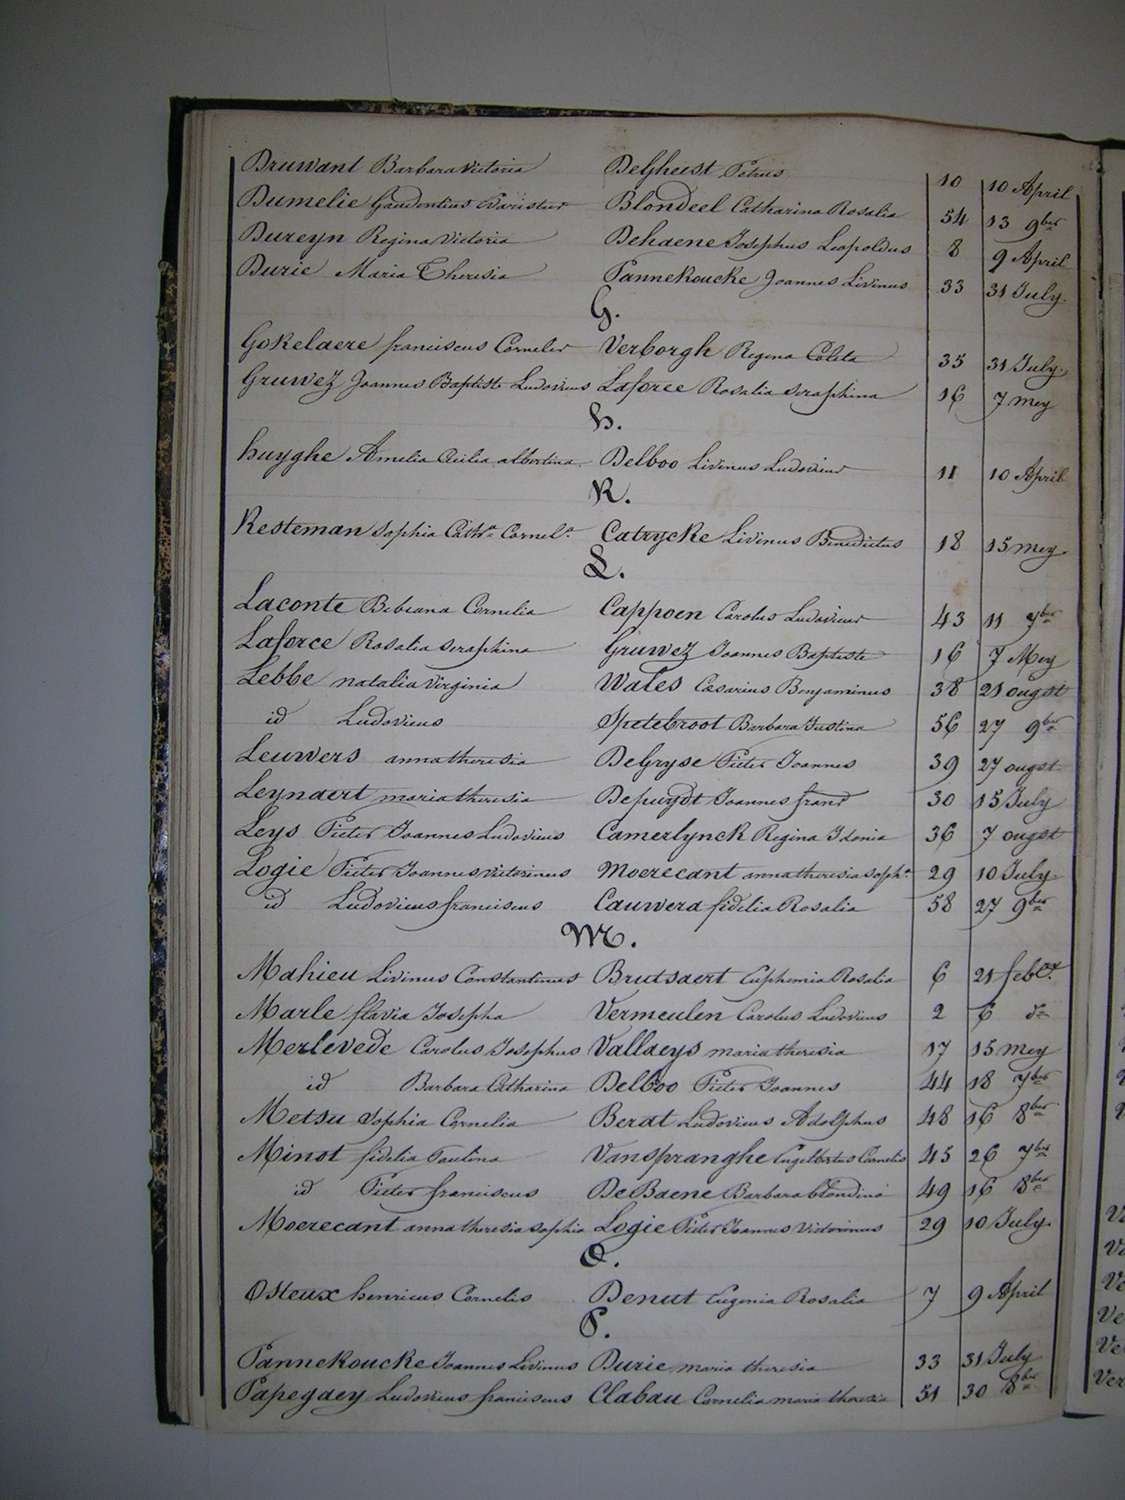 Druwant Barbara Victoria Delgheest Petrus 10 10 April
Dumelie Gaudentius Blondeel Catharina Rosalia 54 13 9ber
Dureyn Regina Victoria Dehaene Josephus Leopoldus 8 9 April
Durie Maria Theresia Pannekoucke Joannes Livinus 33 31 July
G.
Gokelaere franciscus Cornelis Verborgh Regina Coleta 35 31 July
Gruwez Joannes Baptiste Ludovicus Laforce Rosalia Seraphina 16 7 mey
h.
huyghe Amelia Cecilia albertina Delboo Livinus Ludovicus 11 10 April
K.
Kesteman Sophia Cath.a Cornel.a Catrycke Livinus Benedictus 18 15 mey
L.
Laconte Bibiana Cornelia Cappoen Carolus Ludovicus 43 11 7ber
Laforce Rosalia Seraphina Gruwez Joannes Baptiste 16 7 Mey
Lebbe natalia Virginia Wales Cæsarius Benjaminus 38 21 ougst
id Ludovicus Spetebroot Barbara Justina 56 27 9ber
Leuwers anna theresia DeGryse Pieter Joannes 39 27 ougst
Leynaert maria theresia Depuydt Joannes frans 30 15 July
Leys Pieter Joannes Ludovicus Camerlynck Regina Idonia 36 7 ougst
Logie Pieter Joannes Victorinus Moerecant anna theresia soph.a 29 10 July
id Ludovicus franciscus Cauwera fidelia Rosalia 58 27 9ber
M.
Mahieu Livinus Constantinus Brutsaert Euphemia Rosalia 6 21 feb.
Marle flavia Josepha Vermeulen Carolus Ludovicus 2 6 do
Merlevede Carolus Josephus Vallaeys maria theresia 17 15 mey
id Barbara Catharina Delboo Pieter Joannes 44 18 7ber
Metsu Sophia Cornelia Berat Ludovicus Adolphus 48 16 8ber
Minot fidelia Paulina Vanspranghe Engelbertus Cornelis 45 26 7ber
id Pieter franciscus DeBaene Barbara blondina 49 16 8ber
Moerecant anna theresia sophia Logie Pieter Joannes Victorinus 29 10 July
O.
Osteux henricus Cornelis Denut Eugenia Rosalia 7 9 April
P.
Pannekoucke Joannes Livinus Durie maria theresia 33 31 July
Papegaey Ludovicus franciscus Clabau Cornelia maria theresia 51 30 8ber